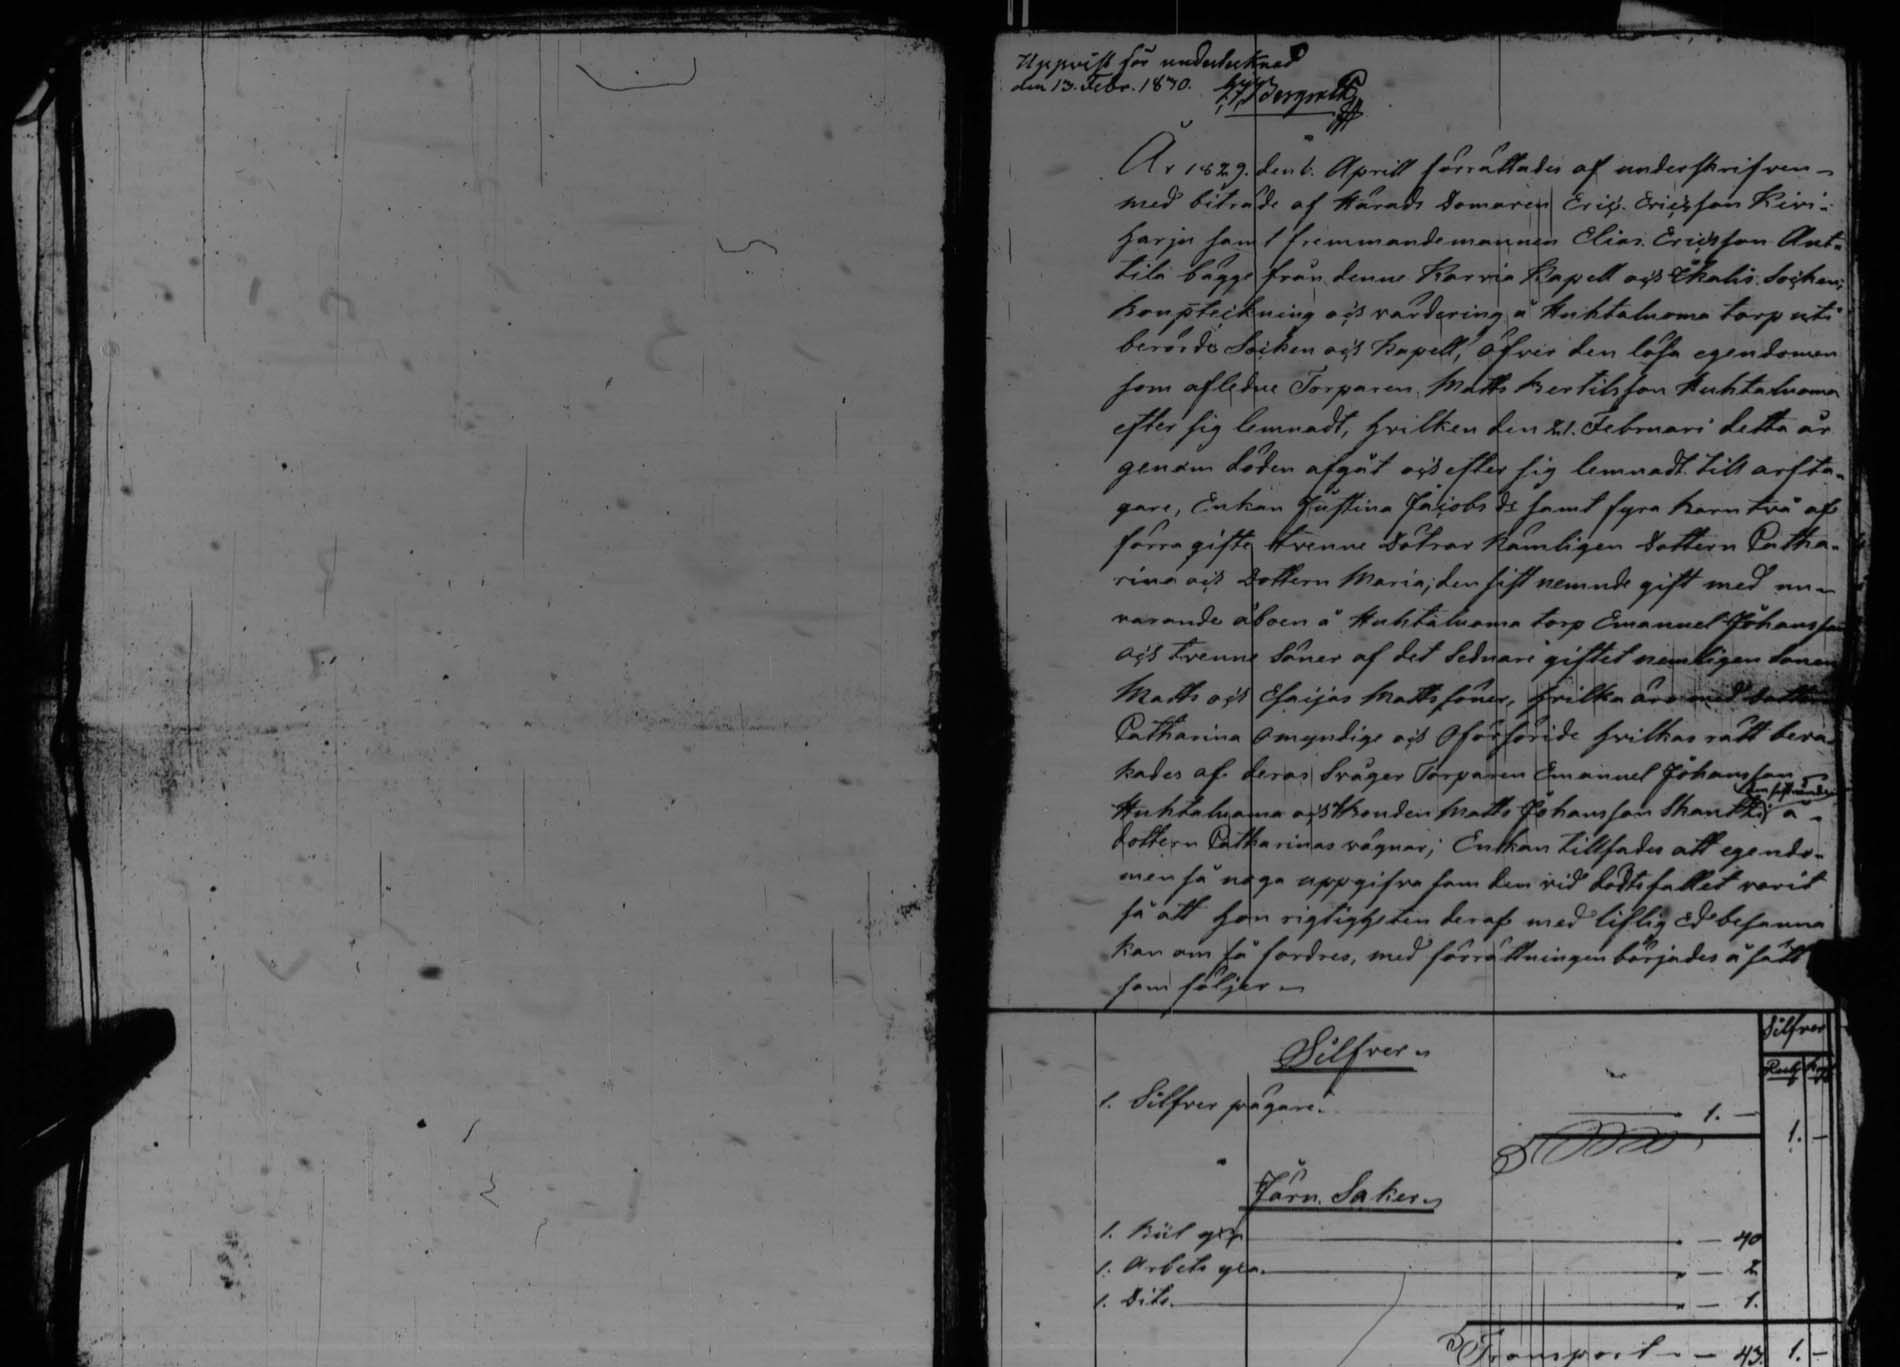 Uppvist för undertecknad
den 13. Febr. 1830.
År 1829. den 6. Aprill förrättades af underskrifven
med biträde af Härads Domaren Eric Ericsson Kivi-
harju samt fremmande mannen Elias Ericsson Ant-
tila bägge från denne Karvia Kapell och Ikalis Sochen;
Bouptekning och värdering å Huhtaluoma torp uti
berörde Socken och Kapell, öfver den lösa egendomen
som afledne Torparen Matts Bertilsson Huhtaluoma
efter sig lemnadt, hvilken den 21. Februari detta år
genom döden afgåt och efter sig lemnadt till arfta-
gare, Enkan Justina Jacobs dr samt fyra barn två af
förra gifte tvenne Dötrar nämligen Dottern Catha-
rina och Dottern Maria, den sist nemnde gift med nu-
varande åboen å Huhtaluoma torp Emanuel Johansson
och tvenne Söner af det Sednare giftet nemligen Sonen
Matts och Esaijas Matts söner, hvilka äro med dottern
Catharina Omyndige och Oförsörjde hvilkas rätt beva-
kades af deras Svåger Torparen Emanuel Johansson
Huhtaluoma och Bonden Matts Johansson Skantz å
dottern Catharinas vägnar; Enkan tillsades att egendo-
men så noga uppgifva som den vid dödsfallet varit
så att hon rigtigheten deraf med liflig Ed besanna
kan om så fordres, med förrättningen börjades å sätt
som följer
Silfver
Silfver
Rub. Kop.
1. Silfver bägare. 1. —
1. —
Järn Saker
1. Bil yxa — 40
1. Arbets yxa. — 2
1. Dito. — 1.
Transport — 43. 1. —